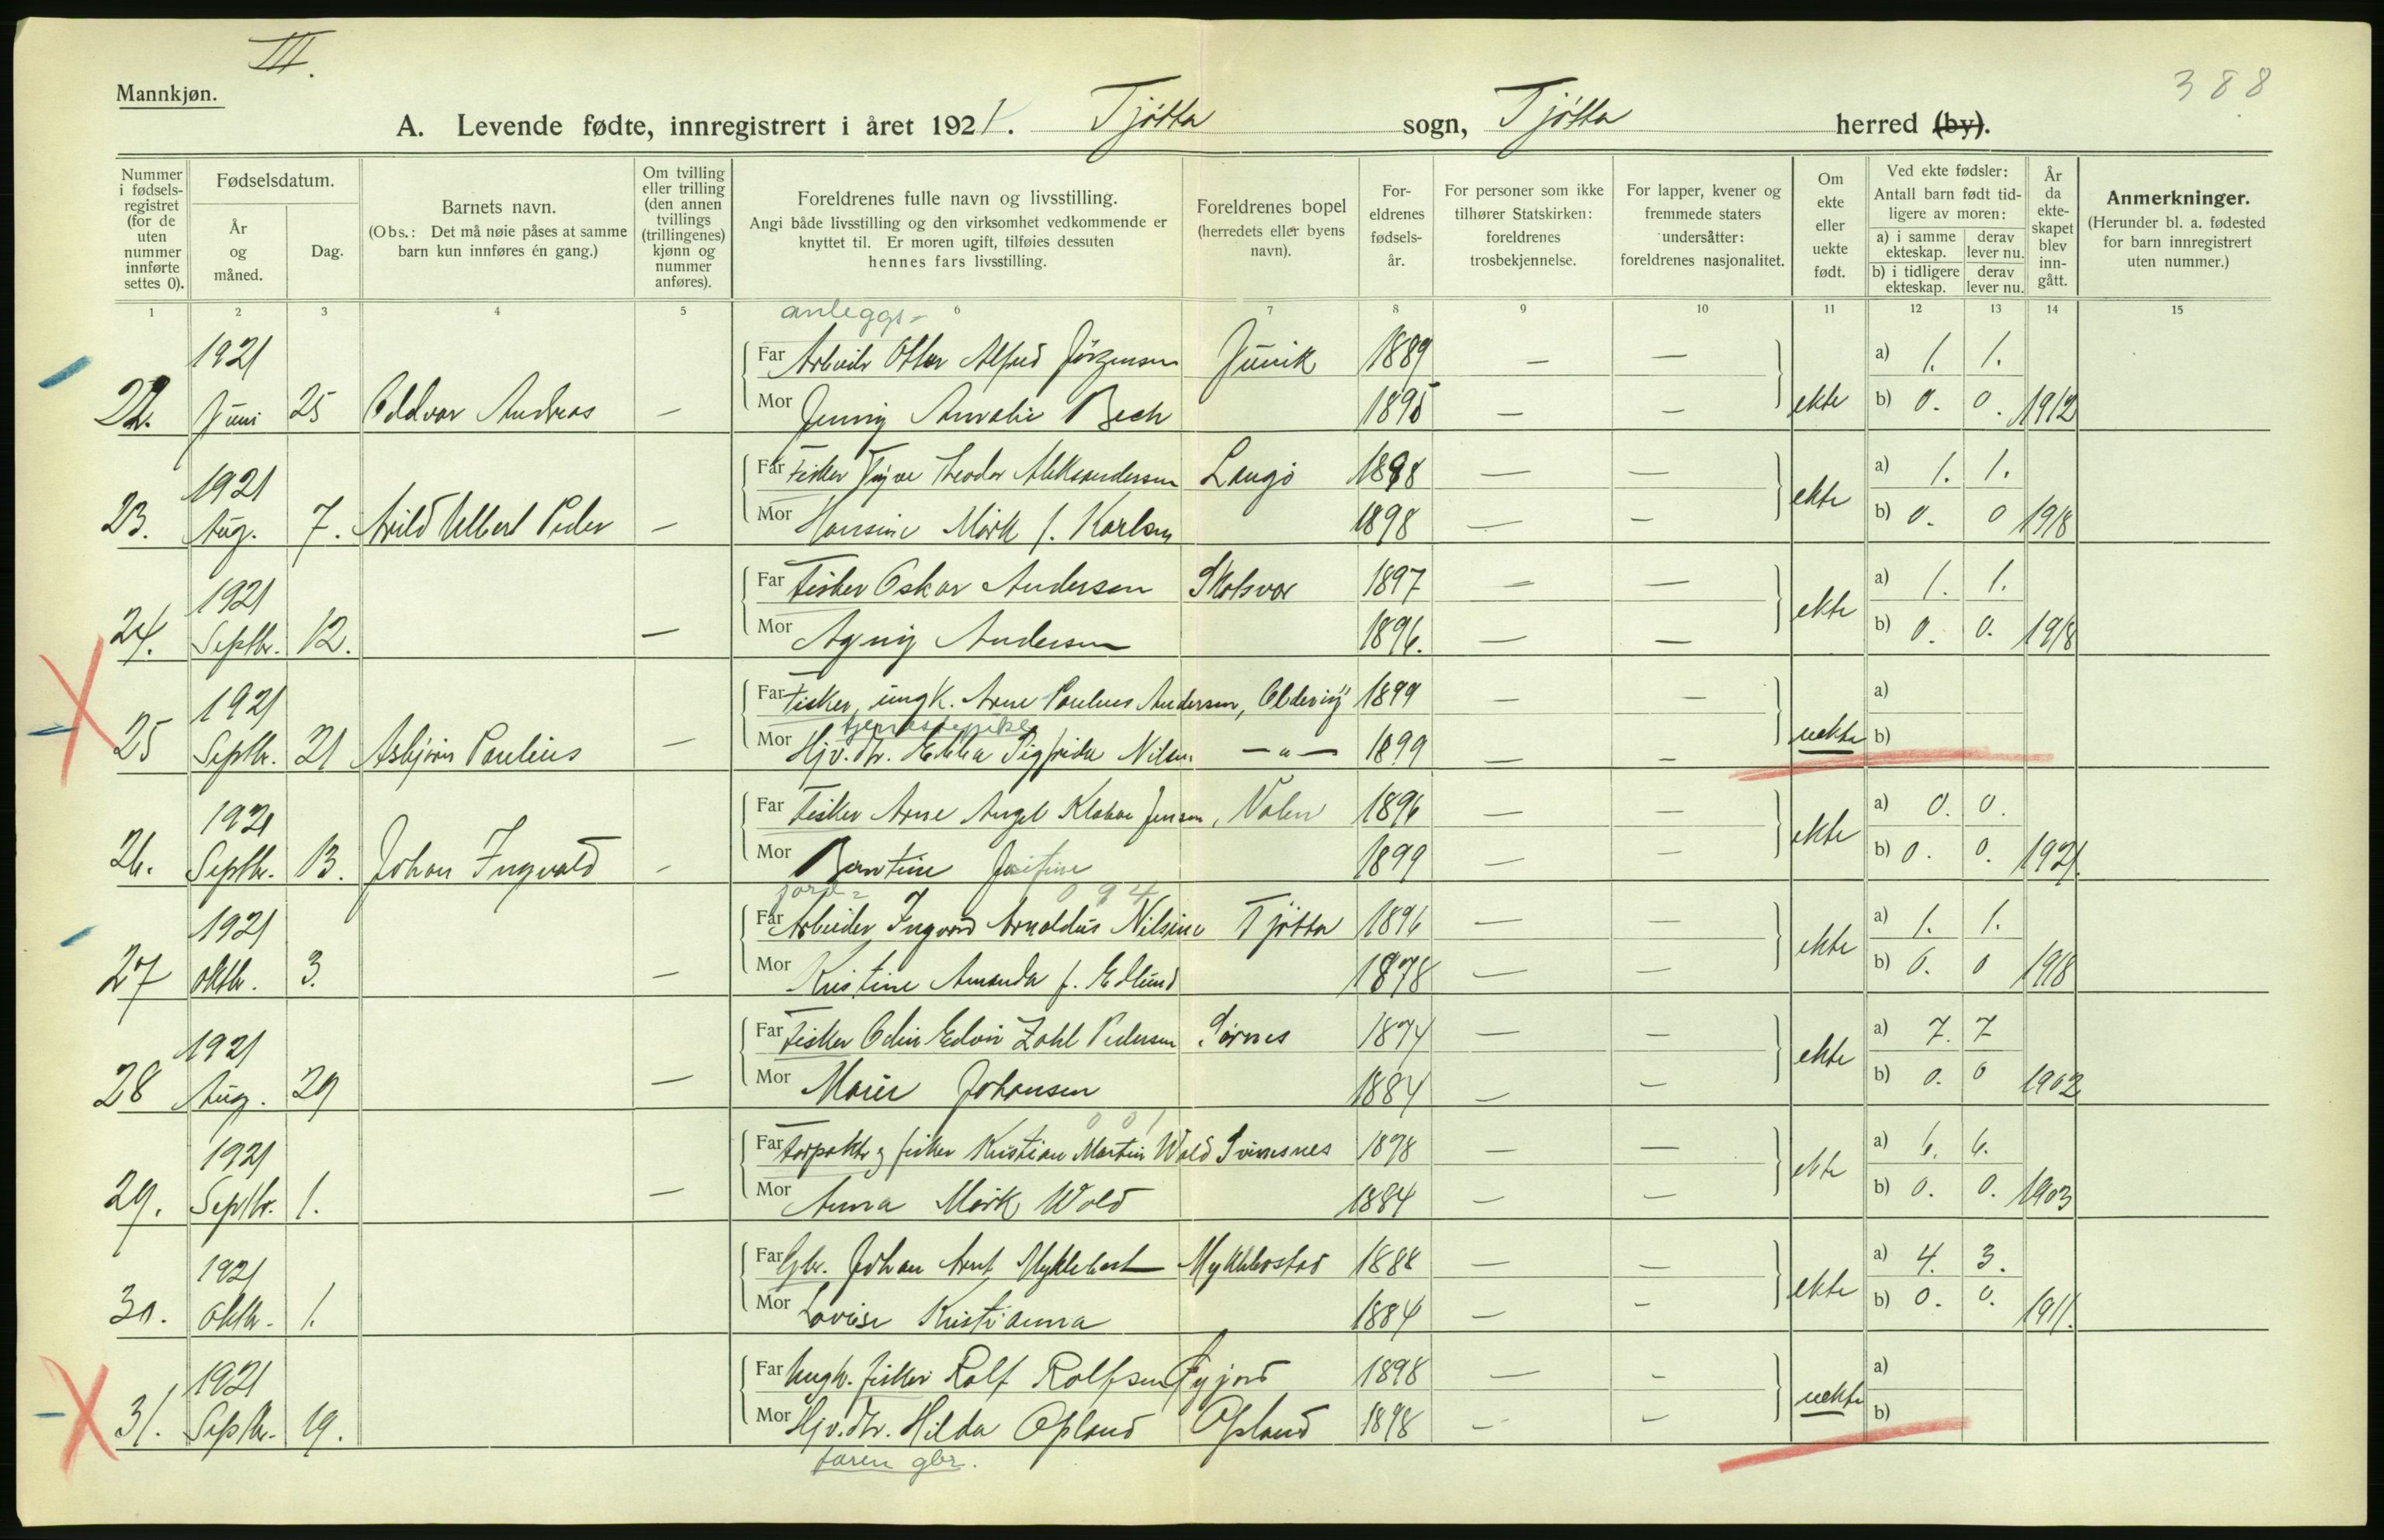 III.
388
Mannkjøn.
A. Levende fødte, innregistrert i året 1921. Tjøtta sogn, Tjøtta herred (by).
Nummer i fødsels-registret (for de uten nummer innførte settes 0).
Fødselsdatum.
År og måned.
Dag.
Barnets navn.
(Obs.: Det må nøie påses at samme barn kun innføres én gang.)
Om tvilling eller trilling (den annen tvillings (trillingenes) kjønn og nummer anføres).
Foreldrenes fulle navn og livsstilling.
Angi både livsstilling og den virksomhet vedkommende er knyttet til. Er moren ugift, tilføies dessuten hennes fars livsstilling.
Foreldrenes bopel (herredets eller byens navn).
For-eldrenes fødsels-år.
For personer som ikke tilhører Statskirken: foreldrenes trosbekjennelse.
For lapper, kvener og fremmede staters undersåtter: foreldrenes nasjonalitet.
Om ekte eller uekte født.
Ved ekte fødsler: Antall barn født tid-ligere av moren:
a) i samme ekteskap. derav lever nu.
b) i tidligere ekteskap. derav lever nu.
År da ekte-skapet blev inn-gått.
Anmerkninger.
(Herunder bl. a. fødested for barn innregistrert uten nummer.)
1 2 3 4 5 6 7 8 9 10 11 12 13 14 15
anleggs-
1921 Far Arbeider Otter Alfred Jørgensen 1889 — — a) 1. 1.
22. Juni 25 Oddvar Andreas — Mor Jenny Amalie Bech 1895 — — ekte b) 0. 0. 1912
1921 Far Fisker Theodor Aleksandersen Langø 1898 — — a) 1. 1.
23. Aug. 7. Arild Albert Peder — Mor Hansine Mørk f. Karlsen 1898 — — ekte b) 0. 0 1918
1921 Far Fisker Oskar Andersen Skotsvær 1897 — — a) 1. 1.
24. Septbr. 12. — Mor Agnig Andersen 1896. — — ekte b) 0. 0. 1918
1921 Far Fisker, ungk. Arne Paulius Andersen, 1899 — — a)
tjenestepike
25 Septbr. 21 Asbjørn Paulius — Mor Hjv. dtr. Sigfrida Nilsen —"— 1899 — — uekte b)
1921 Far Fisker Arne Angel Jensen, Valen 1896 — — a) 0. 0.
26. Septbr. 13. Johan Ingvald - Mor Bentine 1899 — — ekte b) 0. 0. 1921.
jord= 094
1921 Far Arbeider Ingvard Arnoldus Nilsine Tjøtta 1896 — — a) 1. 1.
27 Oktbr. 3. — Mor Kristine Amanda f. Edlund 1878 — — ekte b) 0. 0 1918
1921 Far Fisker Odin Edvin Zahl Pedersen Sørnes 1874 — — a) 7. 7
28 Aug. 29 — Mor Marie Johansen 1884 — — ekte b) 0. 0 1902
001
1921 Far Forpakter og fisker Kristian Martin Wold Svinesnes 1878 — — a) 6. 6.
29. Septbr. 1. — Mor Anna Mørk Wold 1884 — — ekte b) 0. 0. 1903
1921 Far Gbr. Johan Arnt Myklebost Myklebostad 1888 — — a) 4. 3.
30. Oktbr. 1. Mor Lovise Kristianna 1884 — — ekte b) 0. 0. 1911.
1921 Far Ungk. fisker Rolf Rolfsen 1898 — — a)
31. Septbr. 19. Mor Hjv. dtr. Hilda Opland Opland 1898 — — uekte b)
faren gbr.